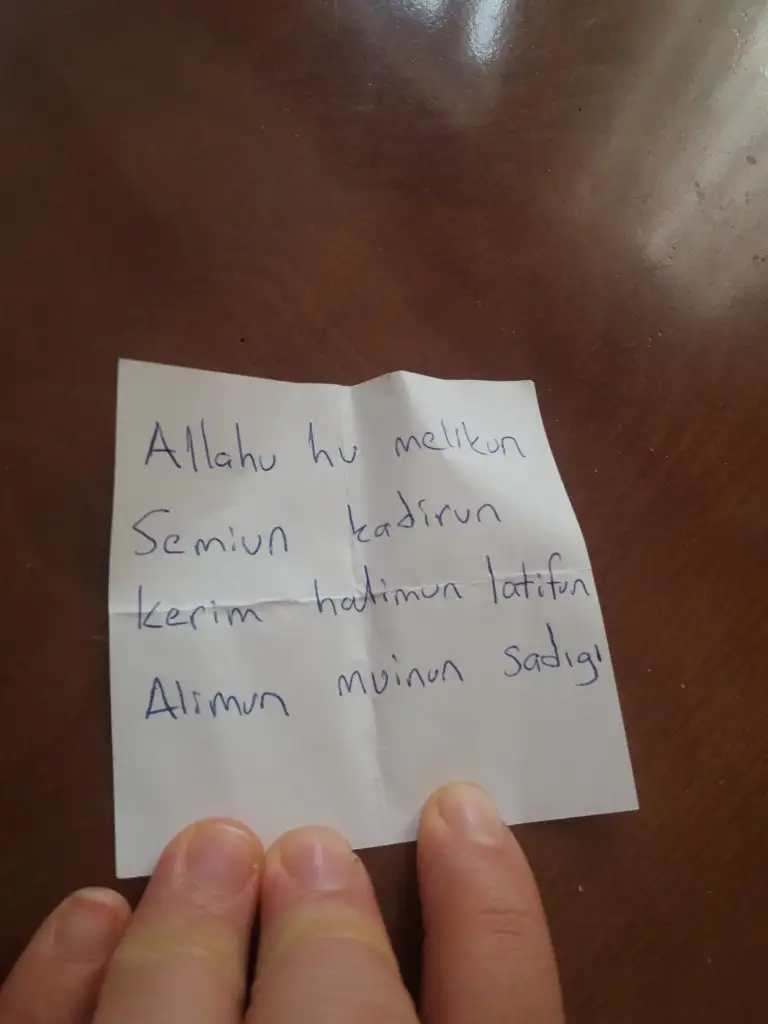 Allahu hu melikun
Semiun kadirun
kerim halimun latifun
Alimun muinun sadıgı